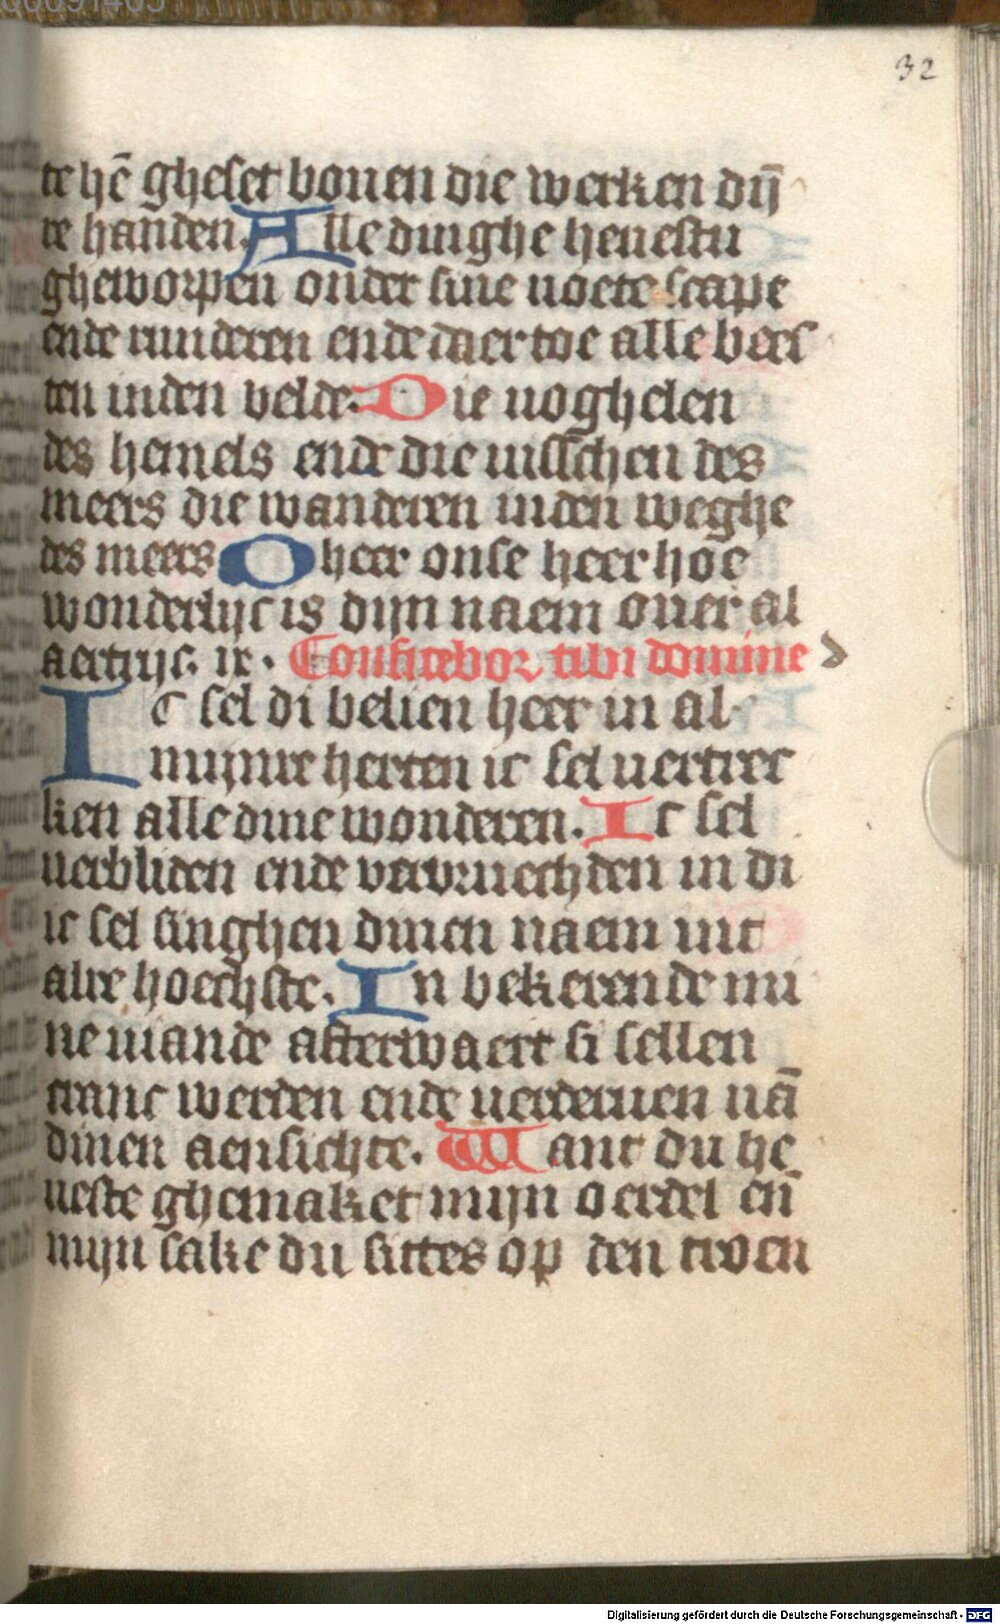 32
te hē gheset bouen die werken dijn
re handen. Alle dinghe heuestu
gheworpen onder sine uoete scape
ende runderen ende daer toe alle bees
ten inden velde. Die uoghelen
des hemels ende die uisschen des
meers die wanderen inden weghe
des meers O heer onse heer hoe
wonderlijc is dijn naem ouer al
aertrijc. ix. Confitebor tibi domine
Ic sel di belien heer in al
mijnre herten ic sel uertrec
ken alle dine wonderen. Ic sel
uerbliden ende vervruechden in di
ic sel singhen dinen naem uut
alre hoechste. In bekerende mi
ne uiande afterwaert si sellen
cranc werden ende uerderuen uā
dinen aensichte. Want du he
ueste ghemaket mijn oerdel eñ
mijn sake du sittes op den troen
Digitalisierung gefördert durch die Deutsche Forschungsgemeinschaft - DFG